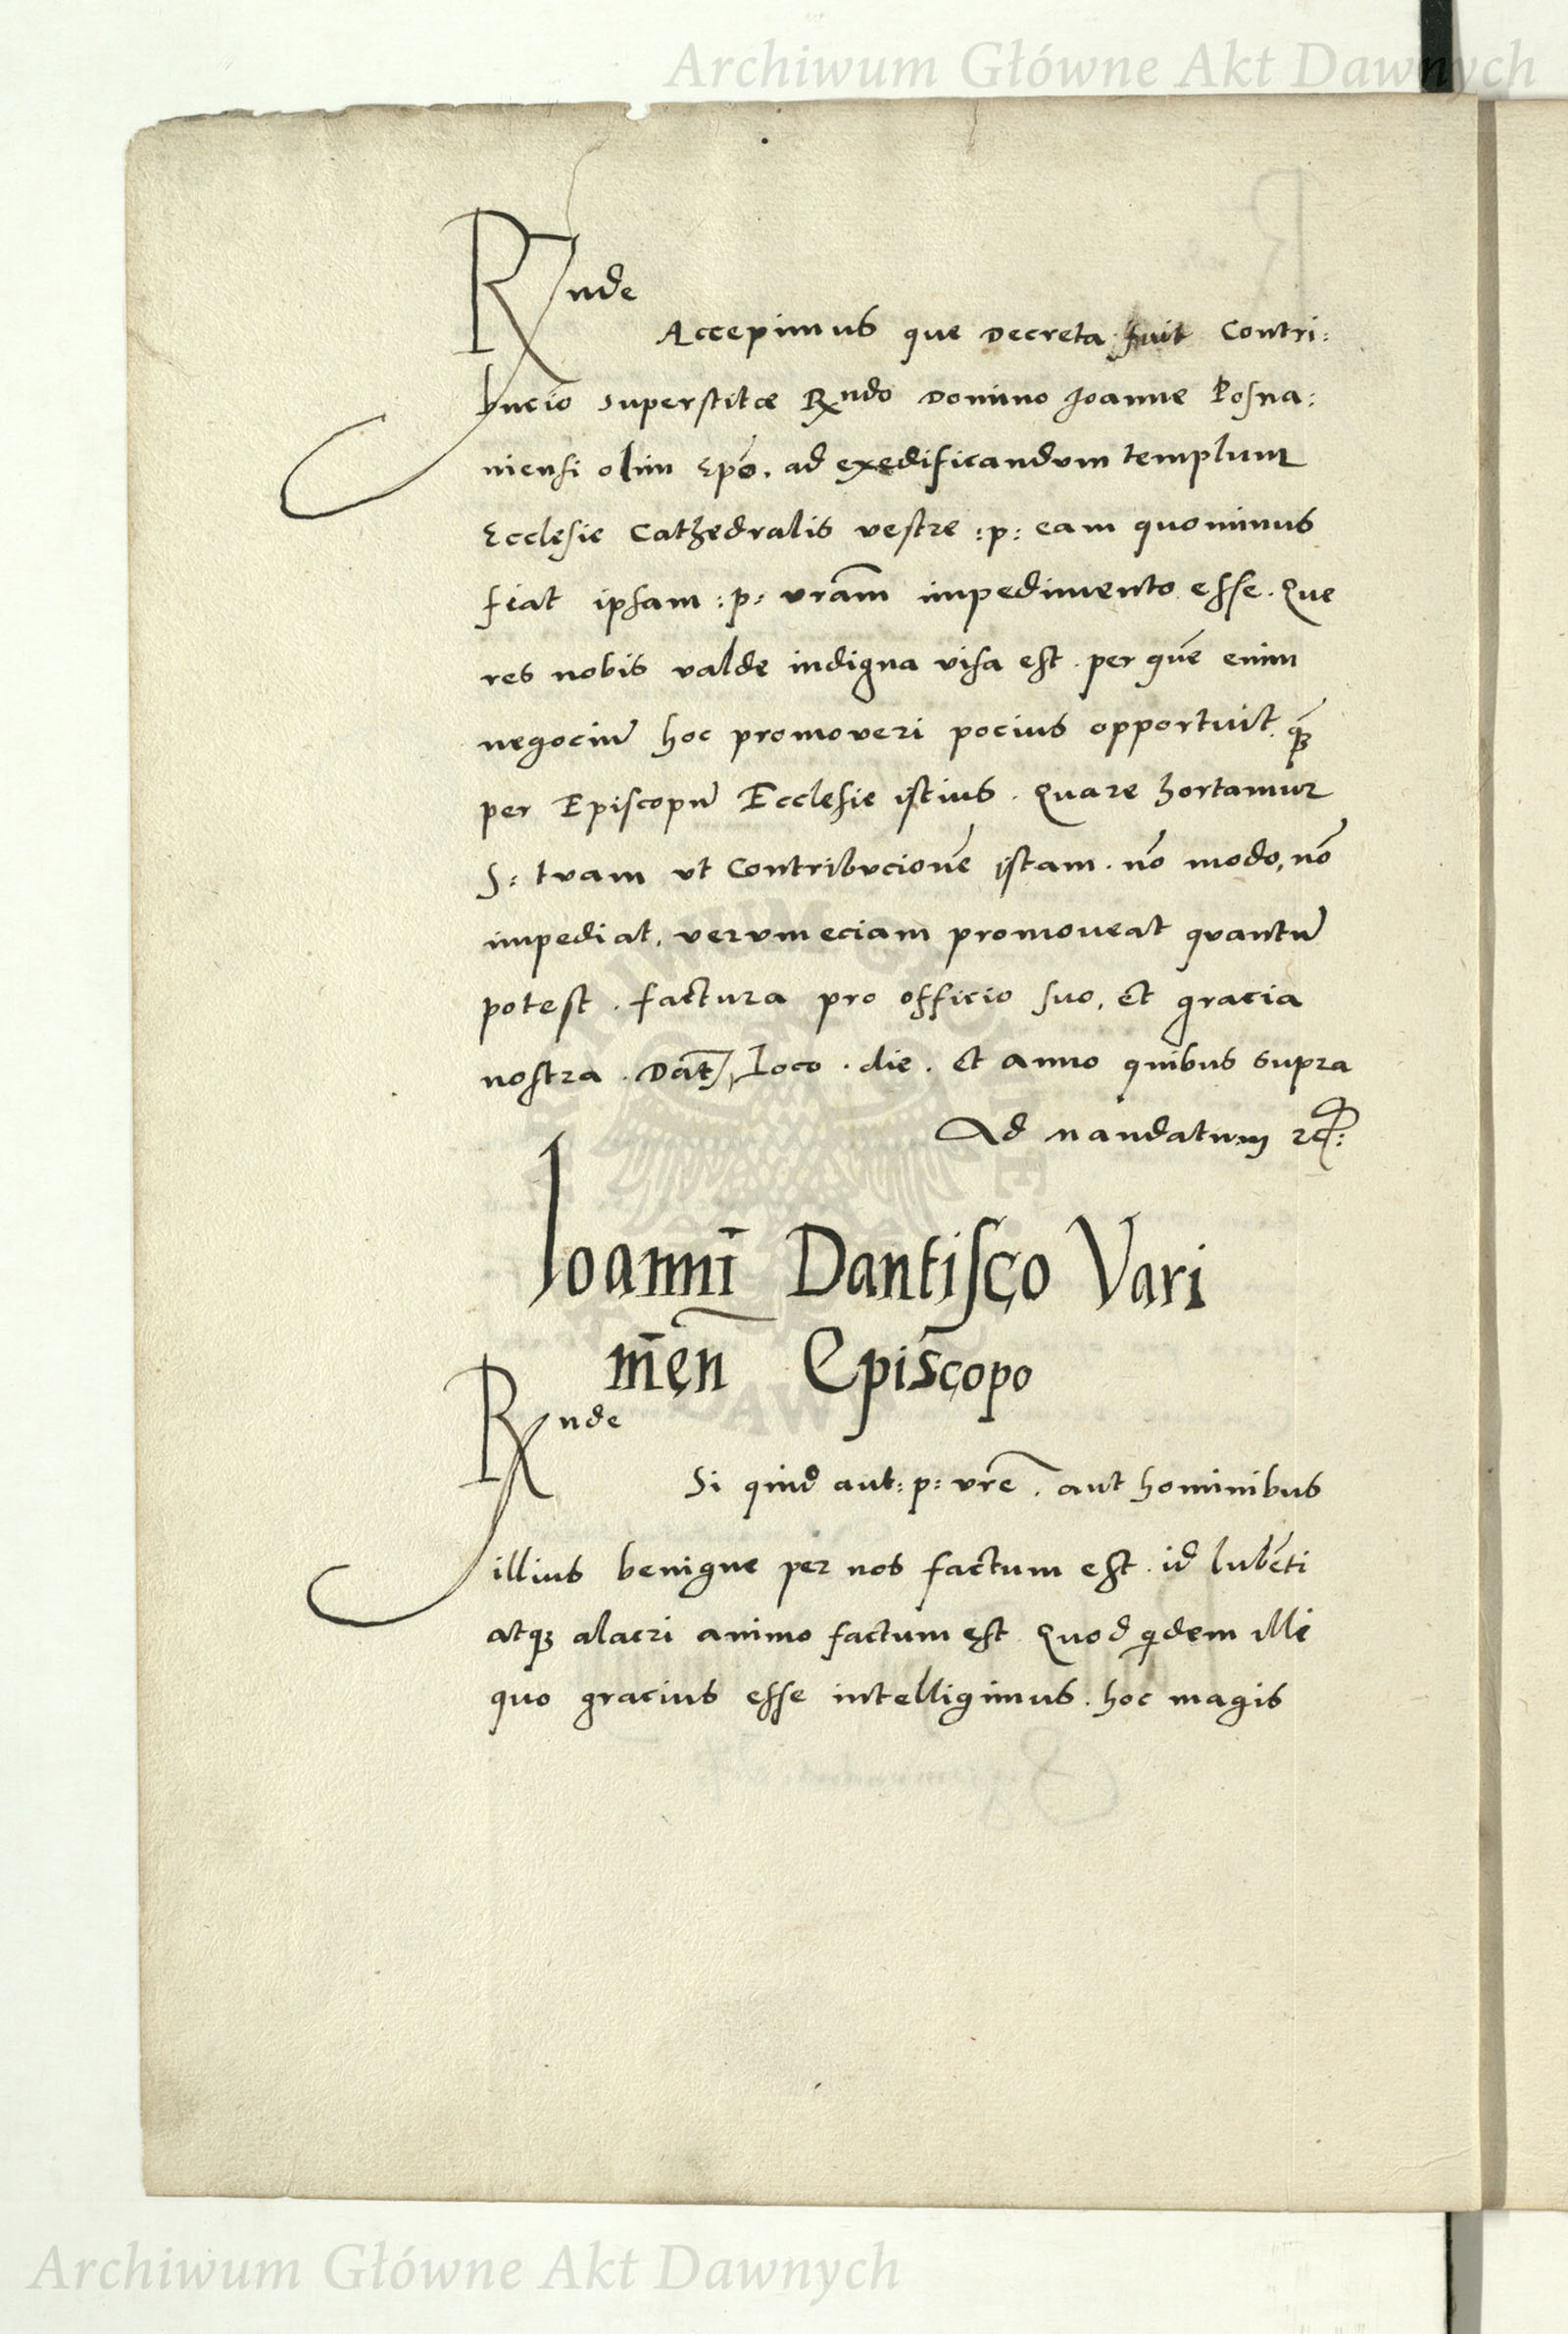 Archiwum Główne Akt Dawnych
Rnde
Accepimus que Decreta fuit Contri:
bucio superstite Rndo Domino Joanne Posna:
niensi olim Epō. ad exedificandum templum
Ecclesie Cathedralis vestre :p: eam quominus
fiat ipsam :p: vram̄ impedimento esse. Que
res nobis valde indigna visa est. per quē enim
negociū hoc promoveri pocius opportuit. qꝫ
per Episcopū Ecclesie istius. Quare hortamur
S: tvam vt Contribvcionē istam. nō modo, nō
impediat, verum eciam promoveat quantū
potest. factura pro officio suo, Et gracia
nostra. Dat̄, Loco. die. Et anno quibus supra
Ad mandatum
Ioannī Dantisco Vari
m̄en Epis̄copo
Rnde
Si quid aut :p: vrē. aut hominibus
illius benigne per nos factum est. id lubēti
atqꝫ alacri animo factum est. Quod qidem illi
quo gracius esse intelligimus. hoc magis
Archiwum Główne Akt Dawnych